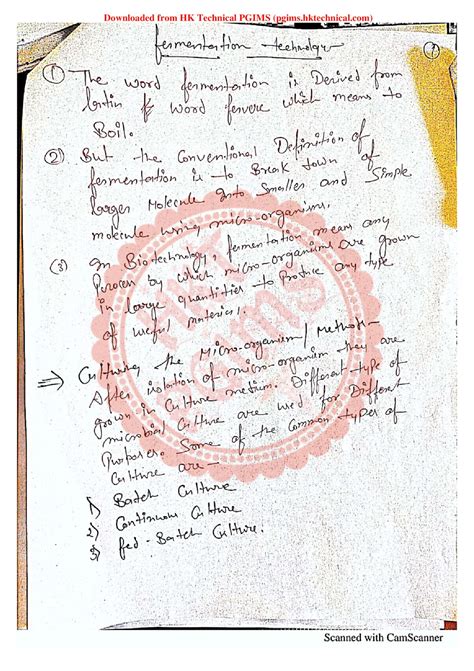 Downloaded from HK Technical PGIMS (pgims.hktechnical.com)
fermentation technology
① The word fermentation is Derived from
latin word fervere which means to
Boil.
② But the Conventional Definition of
fermentation is to Break down of
larger Molecule into Smaller and Simple
molecule using micro-organism.
(3) In Biotechnology, fermentation means any
Process by which micro-organisms are grown
in large quantities to Produce any type
of useful materials.
⇒ Culturing the Micro-organism/Method-
After isolation of micro-organism they are
grown in Culture medium. Different type of
microbial Culture are used for Different
Purposes. Some of the Common types of
Culture are -
1) Batch Culture
2) Continuous Culture
3) fed-Batch Culture.
HK
PGIMS
Scanned with CamScanner